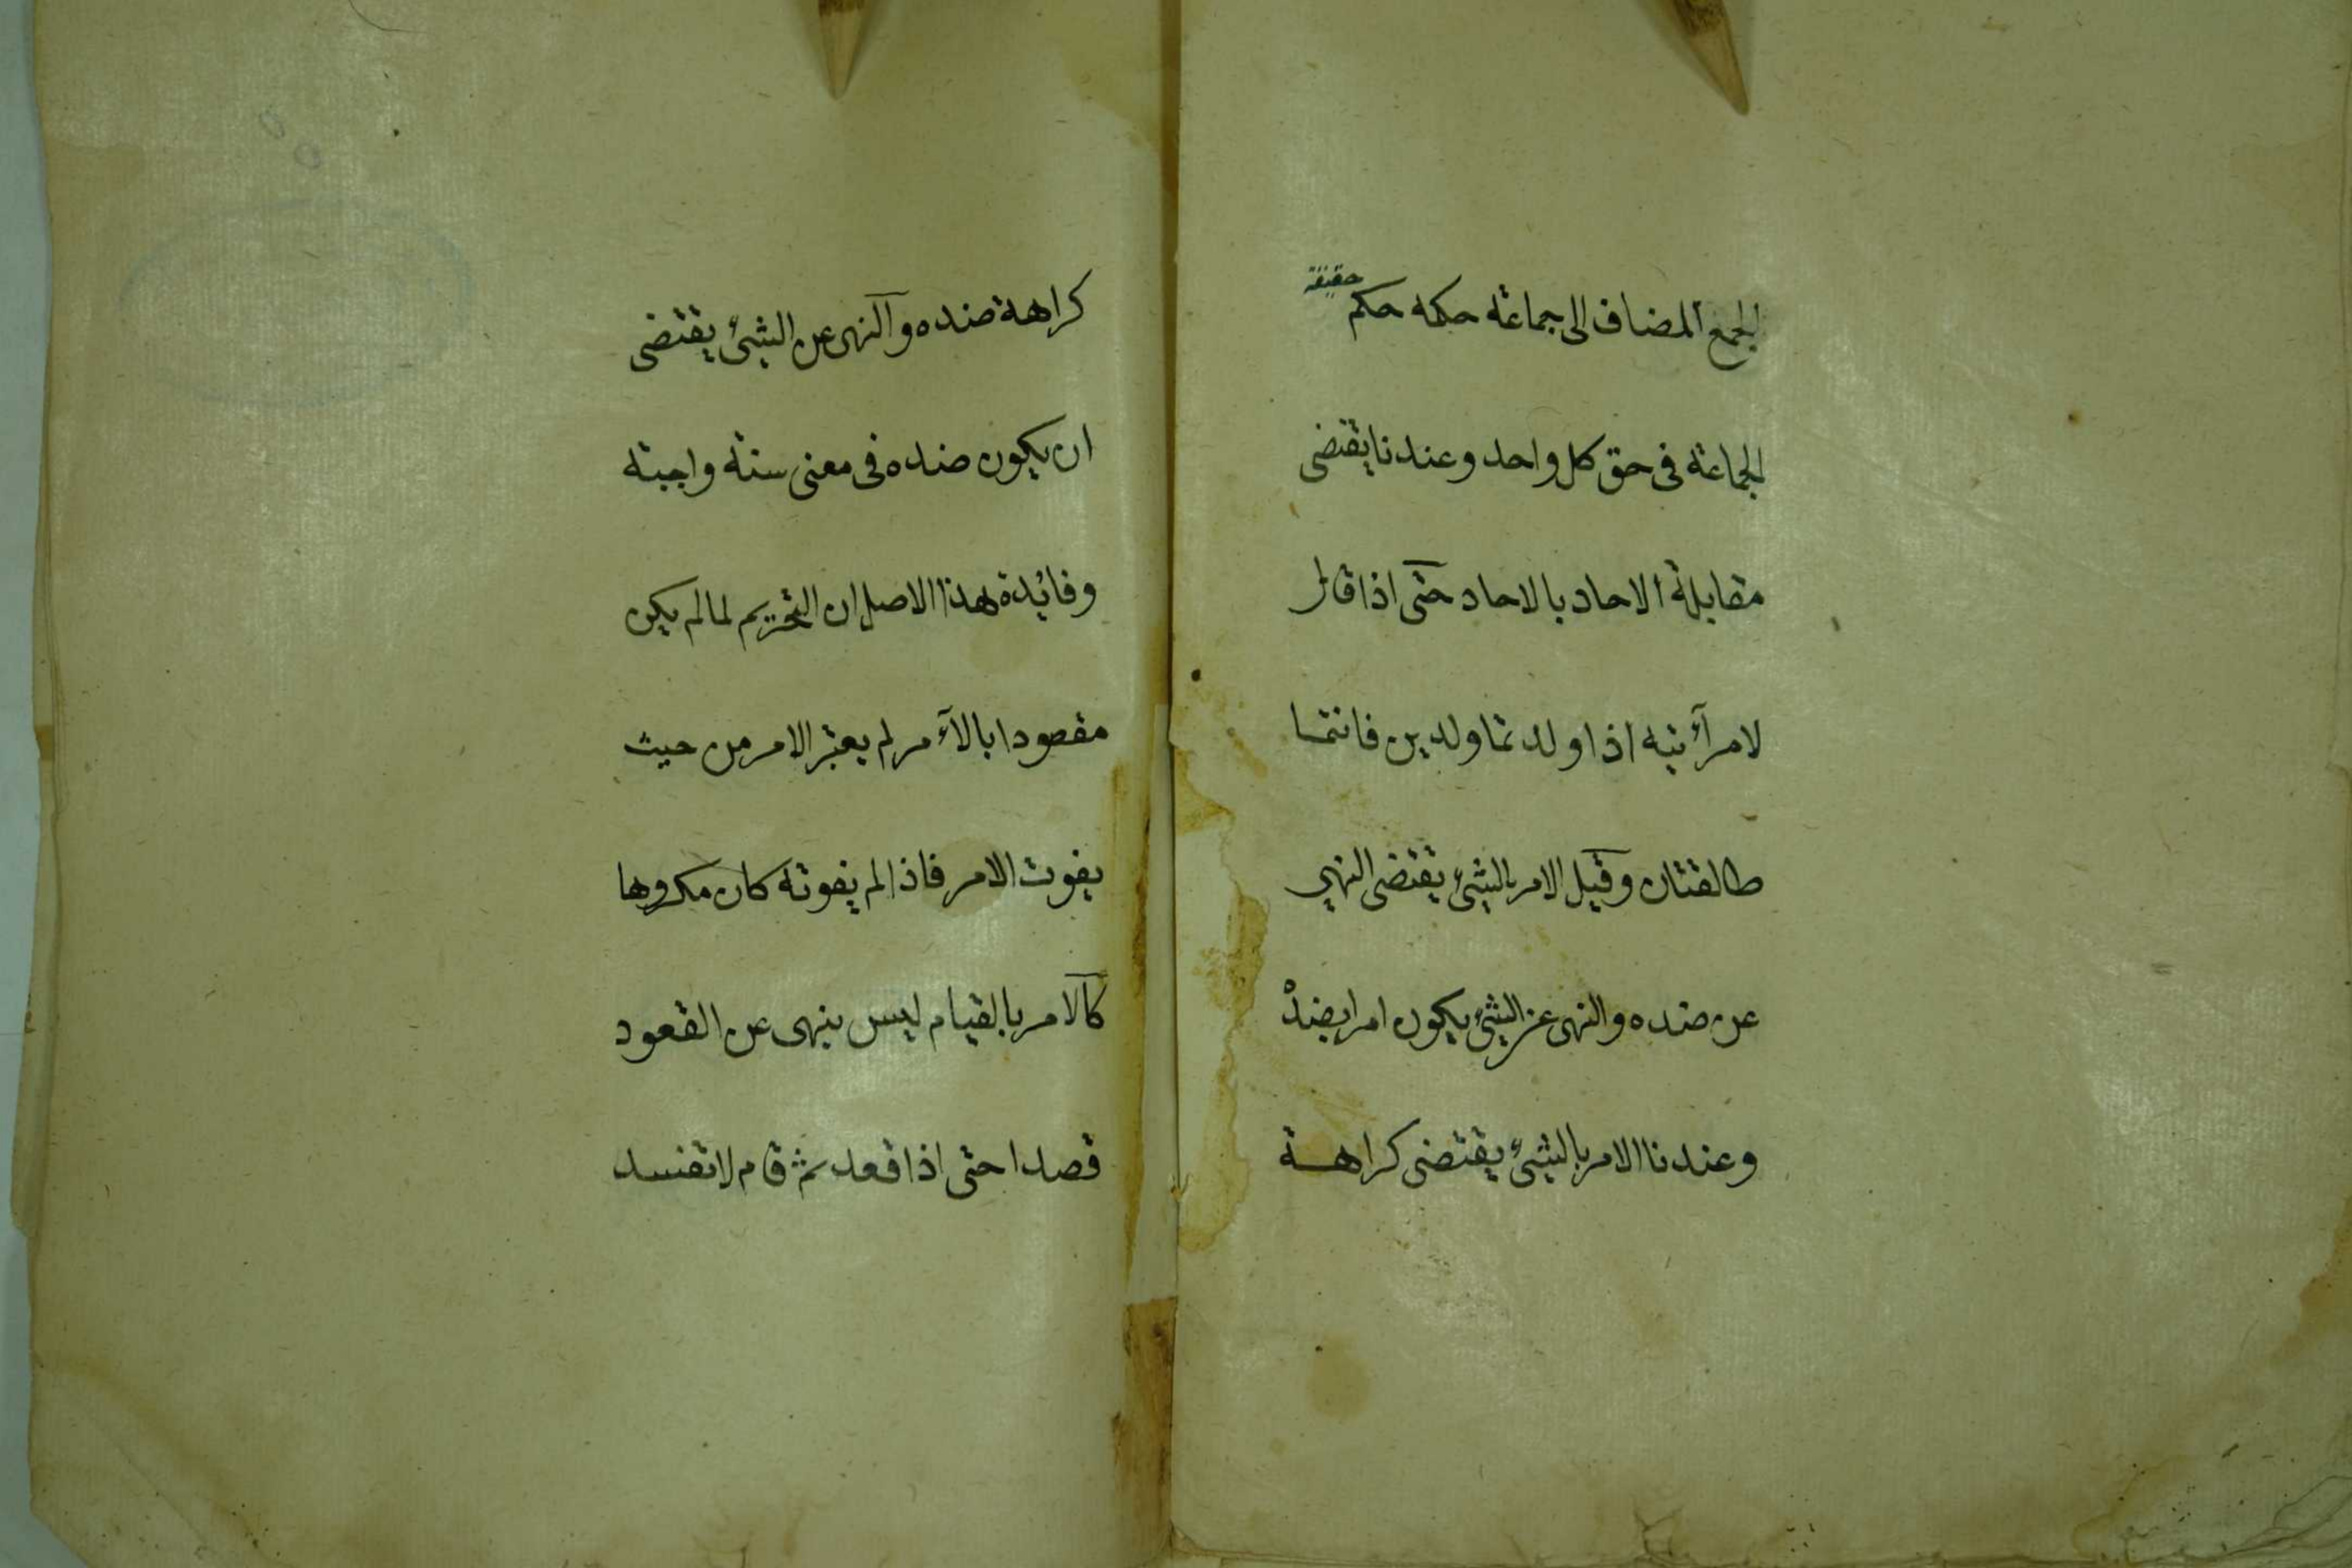 الجمع المضاف الى جماعة حكمه حكم حقيقة
الجماعة فى حق كل واحد وعندنا يقتضى
مقابلة الاحاد بالاحاد حتى اذا قال
لامرأتيه اذا ولدتما ولدين فانتما
طالقتان وقيل الامر بالشئ يقتضى النهي
عن ضده والنهى عن الشئ يكون امرا بضده
وعندنا الامر بالشئ يقتضى كراهة
كراهة ضده والنهى عن الشئ يقتضى
ان يكون ضده فى معنى سنة واجبة
وفائدة هذا الاصل ان التحريم لما لم يكن
مقصودا بالأمر لم يعتبر الامر من حيث
يفوت الامر فاذا لم يفوته كان مكروها
كالامر بالقيام ليس بنهى عن القعود
قصدا حتى اذا قعد ثم قام لا تفسد